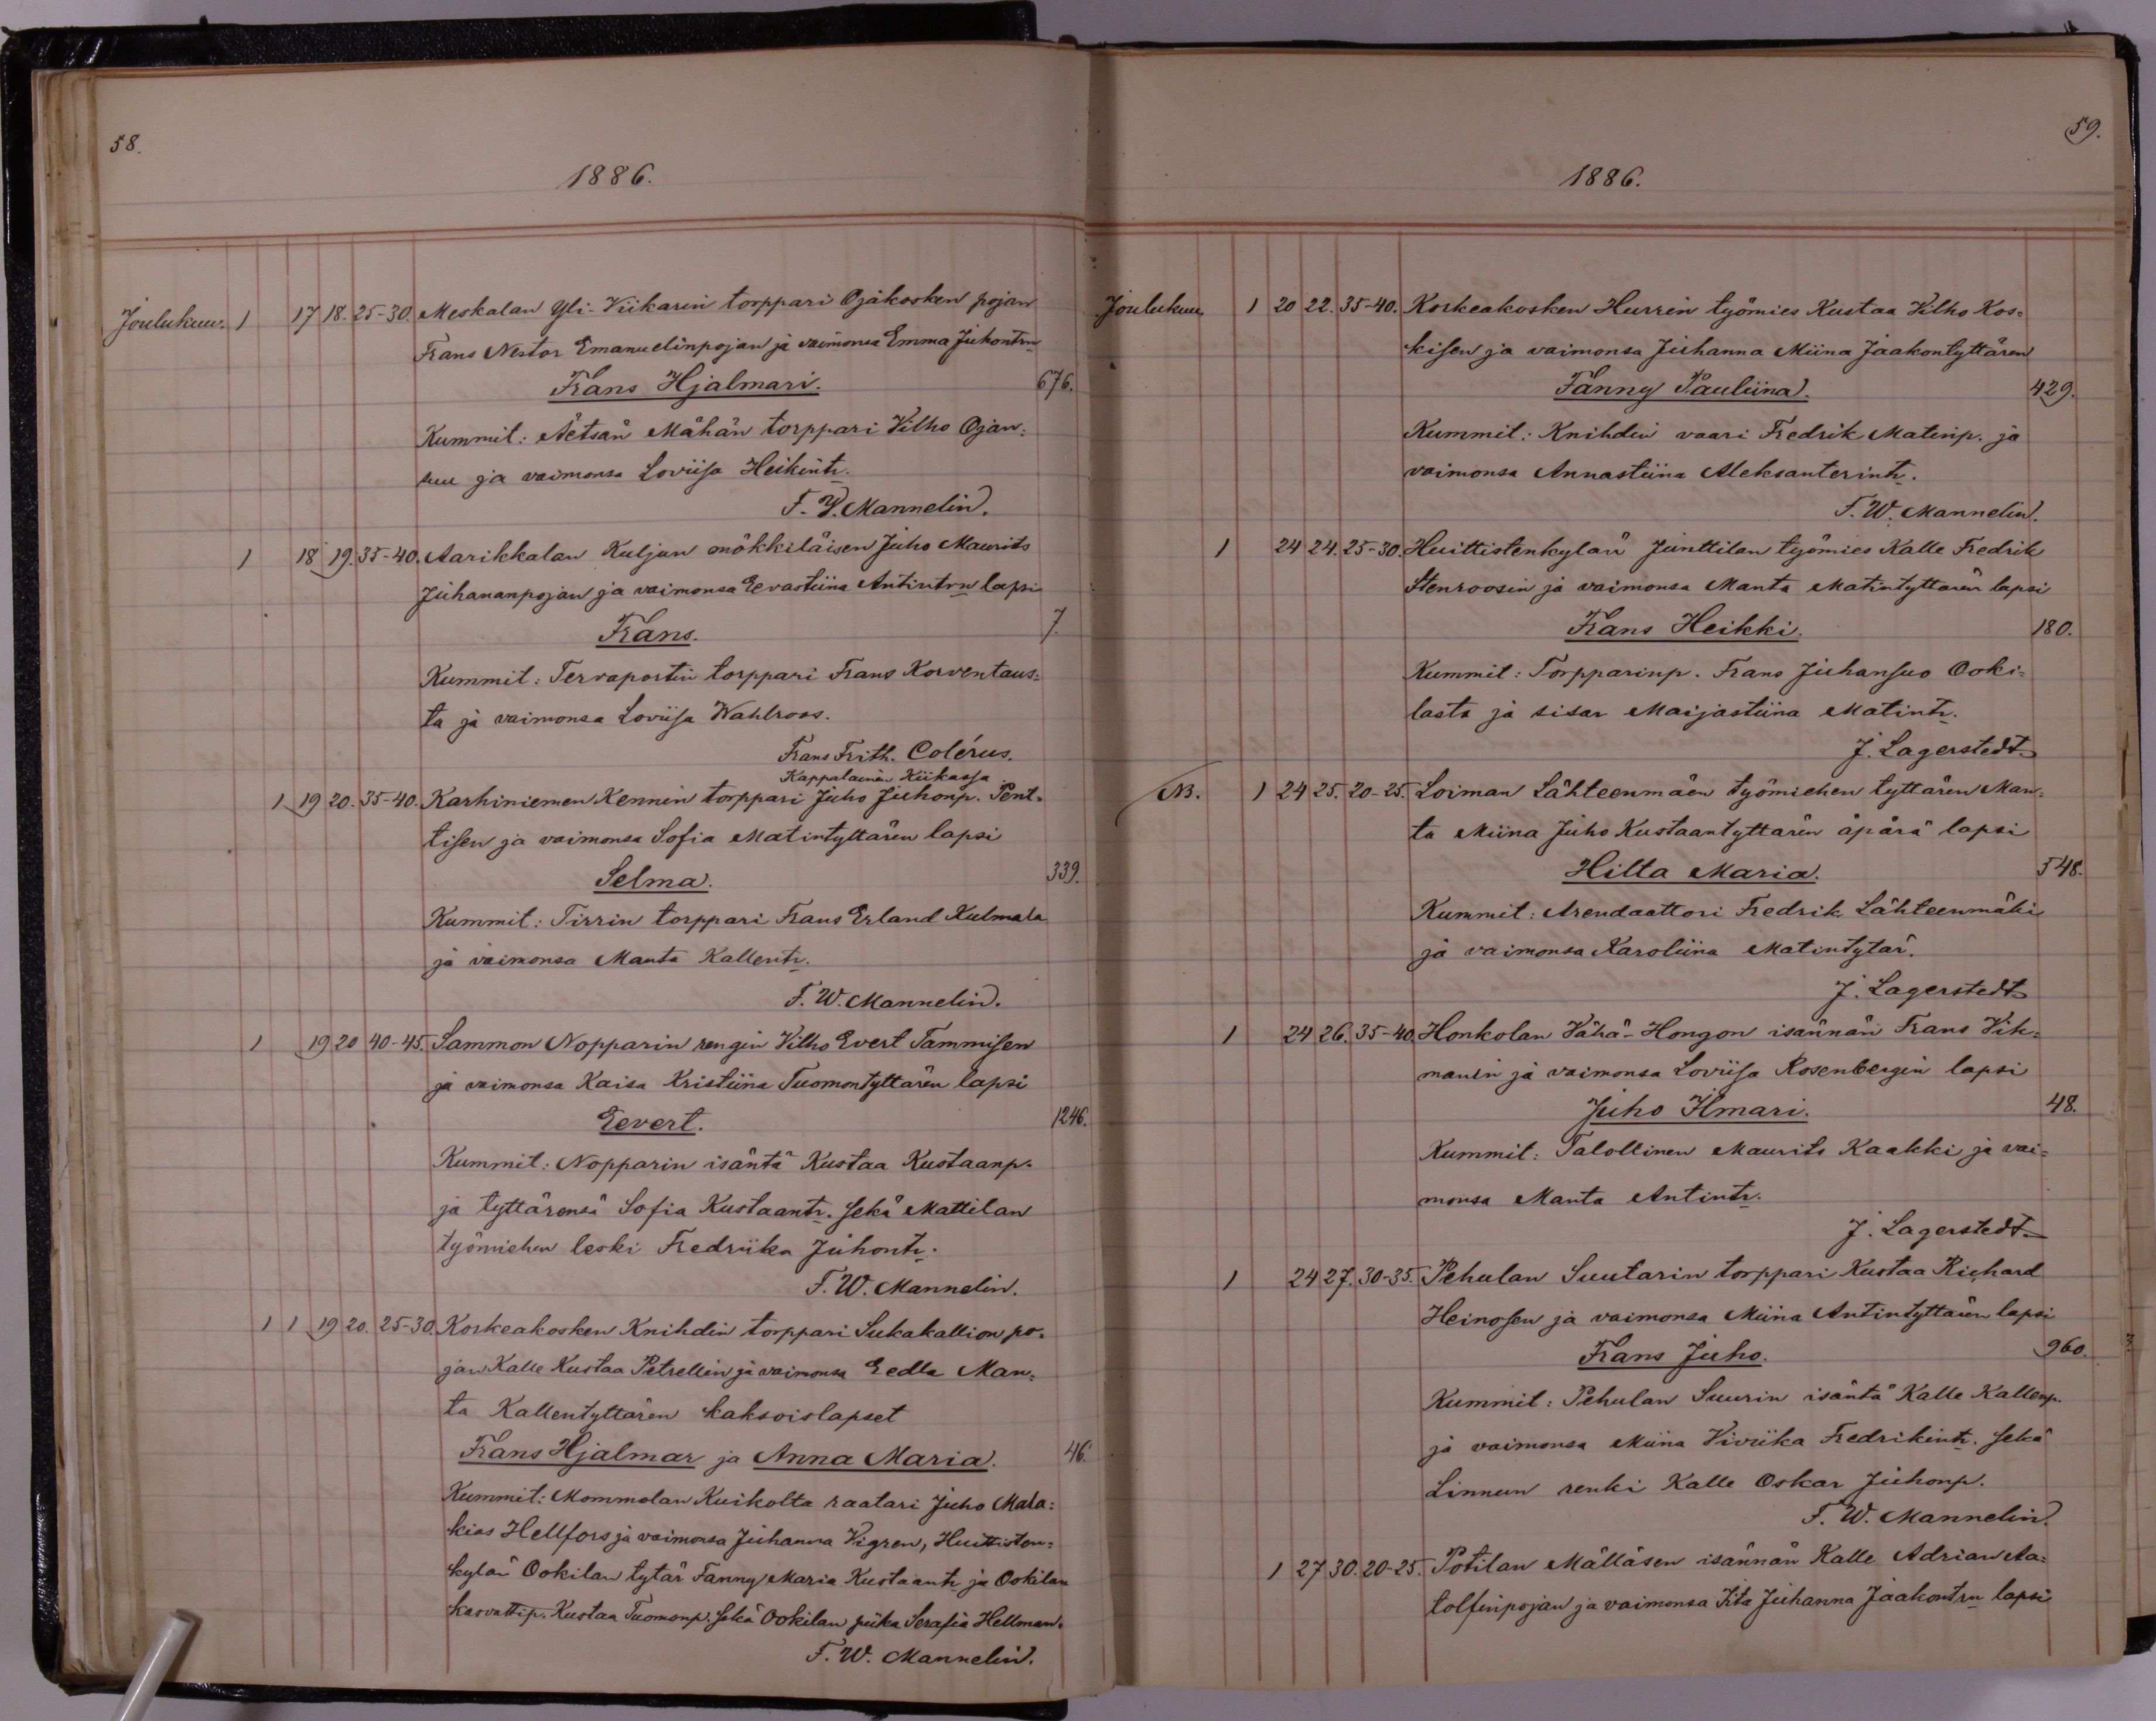 58.
1886.
Joulukuu. 1 17 18. 25-30. Meskalan Yli-Viikarin torppari Ojakosken pojan
Frans Nestor Emanuelinpojan ja vaimonsa Emma Juhontrn
Frans Hjalmari. 676.
Kummit: Äetsän Mähän torppari Vilho Ojan-
suu ja vaimonsa Loviisa Heikintr.
F. W. Mannelin.
1 18 19. 35-40. Aarikkalan Kuljun mökkiläisen Juho Maurits
Juhananpojan ja vaimonsa Eevastiina Antintrn lapsi
Frans. 7.
Kummit: Tervaportin torppari Frans Korventaus-
ta ja vaimonsa Loviisa Wahlroos.
Frans Frith. Colérus.
Kappalainen Kiikassa
1 19 20. 35-40. Karhiniemen Kennin torppari Juho Juhonp. Pent-
tisen ja vaimonsa Sofia Matintyttären lapsi
Selma. 339.
Kummit: Tirrin torppari Frans Erland Kulmala
ja vaimonsa Manta Kallentr.
F. W. Mannelin.
1 19 20 40-45. Sammon Nopparin rengin Vilho Evert Tammisen
ja vaimonsa Kaisa Kristiina Tuomontyttären lapsi
Eevert. 1246.
Kummit: Nopparin isäntä Kustaa Kustaanp.
ja tyttärensä Sofia Kustaantr. sekä Mattilan
työmiehen leski Fredriika Juhontr.
F. W. Mannelin.
1 1 19 20. 25-30 Korkeakosken Knihdin torppari Sukakallion po-
jan Kalle Kustaa Petrellin ja vaimonsa Eedla Man-
ta Kallentyttären kaksoislapset
Frans Hjalmar ja Anna Maria. 46.
Kummit: Mommolan Kuikolta raatari Juho Mala-
kias Hellfors ja vaimonsa Juhanna Vigren, Huittisten-
kylän Ookilan tytär Fanny Maria Kustaantr ja Ookilan
kasvattip. Kustaa Tuomonp. sekä Ookilan piika Serafia Hellman.
F. W. Mannelin.
59.
1886.
Joulukuu 1 20 22. 35-40. Korkeakosken Hurrin työmies Kustaa Vilho Kos-
kisen ja vaimonsa Juhanna Miina Jaakontyttären
Fanny Pauliina. 429.
Kummit: Knihdin vaari Fredrik Matinp. ja
vaimonsa Annastiina Aleksanterintr.
F. W. Mannelin.
1 24 24. 25-30. Huittistenkylän Junttilan työmies Kalle Fredrik
Stenroosin ja vaimonsa Manta Matintyttären lapsi
Frans Heikki. 180.
Kummit: Torpparinp. Frans Juhansuo Ooki-
lasta ja sisar Maijastiina Matintr.
J. Lagerstedt.
NB. 1 24 25. 20-25. Loiman Lähteenmäen työmiehen tyttären Man-
ta Miina Juho Kustaantyttären äpärä lapsi
Hilta Maria. 548.
Kummit: Arendaattori Fredrik Lähteenmäki
ja vaimonsa Karoliina Matintytär.
J. Lagerstedt
1 24 26. 35-40. Honkolan Vähä-Hongon isännän Frans Vik-
manin ja vaimonsa Loviisa Rosenbergin lapsi
Juho Ilmari. 48.
Kummit: Talollinen Maurits Kaakki ja vai-
monsa Manta Antintr.
J. Lagerstedt.
1 24 27. 30-35. Pehulan Suutarin torppari Kustaa Richard
Heinosen ja vaimonsa Miina Antintyttären lapsi
Frans Juho. 960.
Kummit: Pehulan Suurin isäntä Kalle Kallenp.
ja vaimonsa Miina Viviika Fredrikintr. sekä
Linnun renki Kalle Oskar Juhonp.
F. W. Mannelin.
1 27 30. 20-25. Potilan Mälläsen isännän Kalle Adrian Aa-
tolfinpojan ja vaimonsa Iita Juhanna Jaakontrn lapsi